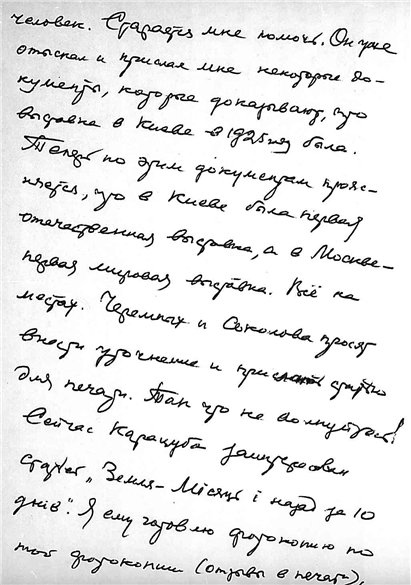 человек. Старается мне помочь. Он уже
отыскал и прислал мне некоторые до-
кументы, которые доказывают, что
выставка в Киеве в 1925 году была.
Теперь по этим документам прояс-
няется, что в Киеве была первая
отечественная выставка, а в Москве-
первая мировая выставка. Всё на
местах. Черемных и Соколова просят
внести уточнение и статью
для печати. Так что не волнуйтесь!
Сейчас Карацуба заинтересован
статьей „Земля-Місяць і назад за 10
днів". Я ему готовлю фотокопию по
той фотокопии (отрывы в печати),